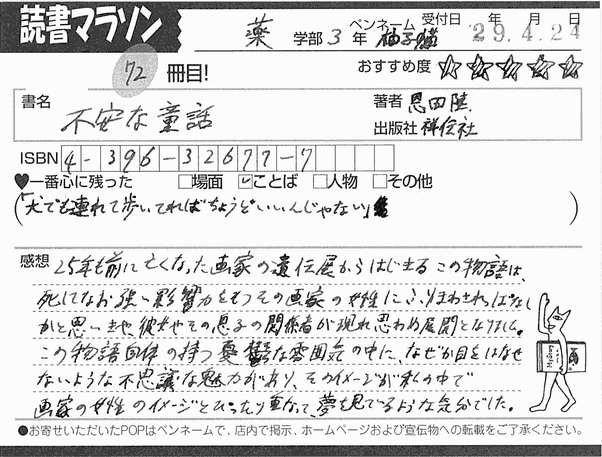 読書マラソン
薬 学部 3 年 ペンネーム 柚子 受付日 年 月 日
29.4.24
72 冊目! おすすめ度 ☆☆☆☆☆
書名 不安な童話 著者 恩田陸
出版社 祥伝社
ISBN 4-396-32677-7
♥一番心に残った □場面 ☑ことば □人物 □その他
(「犬でも連れて歩いてればちょうどいいんじゃない」)
感想 25年も前に亡くなった画家の遺作展からはじまるこの物語は、
死してなお強い影響力をもつその画家の女性にふりまわされっぱなし
かと思いきや、彼女やその息子の関係者が現れ思わぬ展開となりました。
この物語自体の持つ憂鬱な雰囲気の中に、なぜか目をはなせ
ないような不思議な魅力があり、そのイメージが私の中で
画家の女性のイメージとぴったり重なって、夢を見てるような気分でした。
●お寄せいただいたPOPはペンネームで、店内で掲示、ホームページおよび宣伝物への転載をご了承ください。